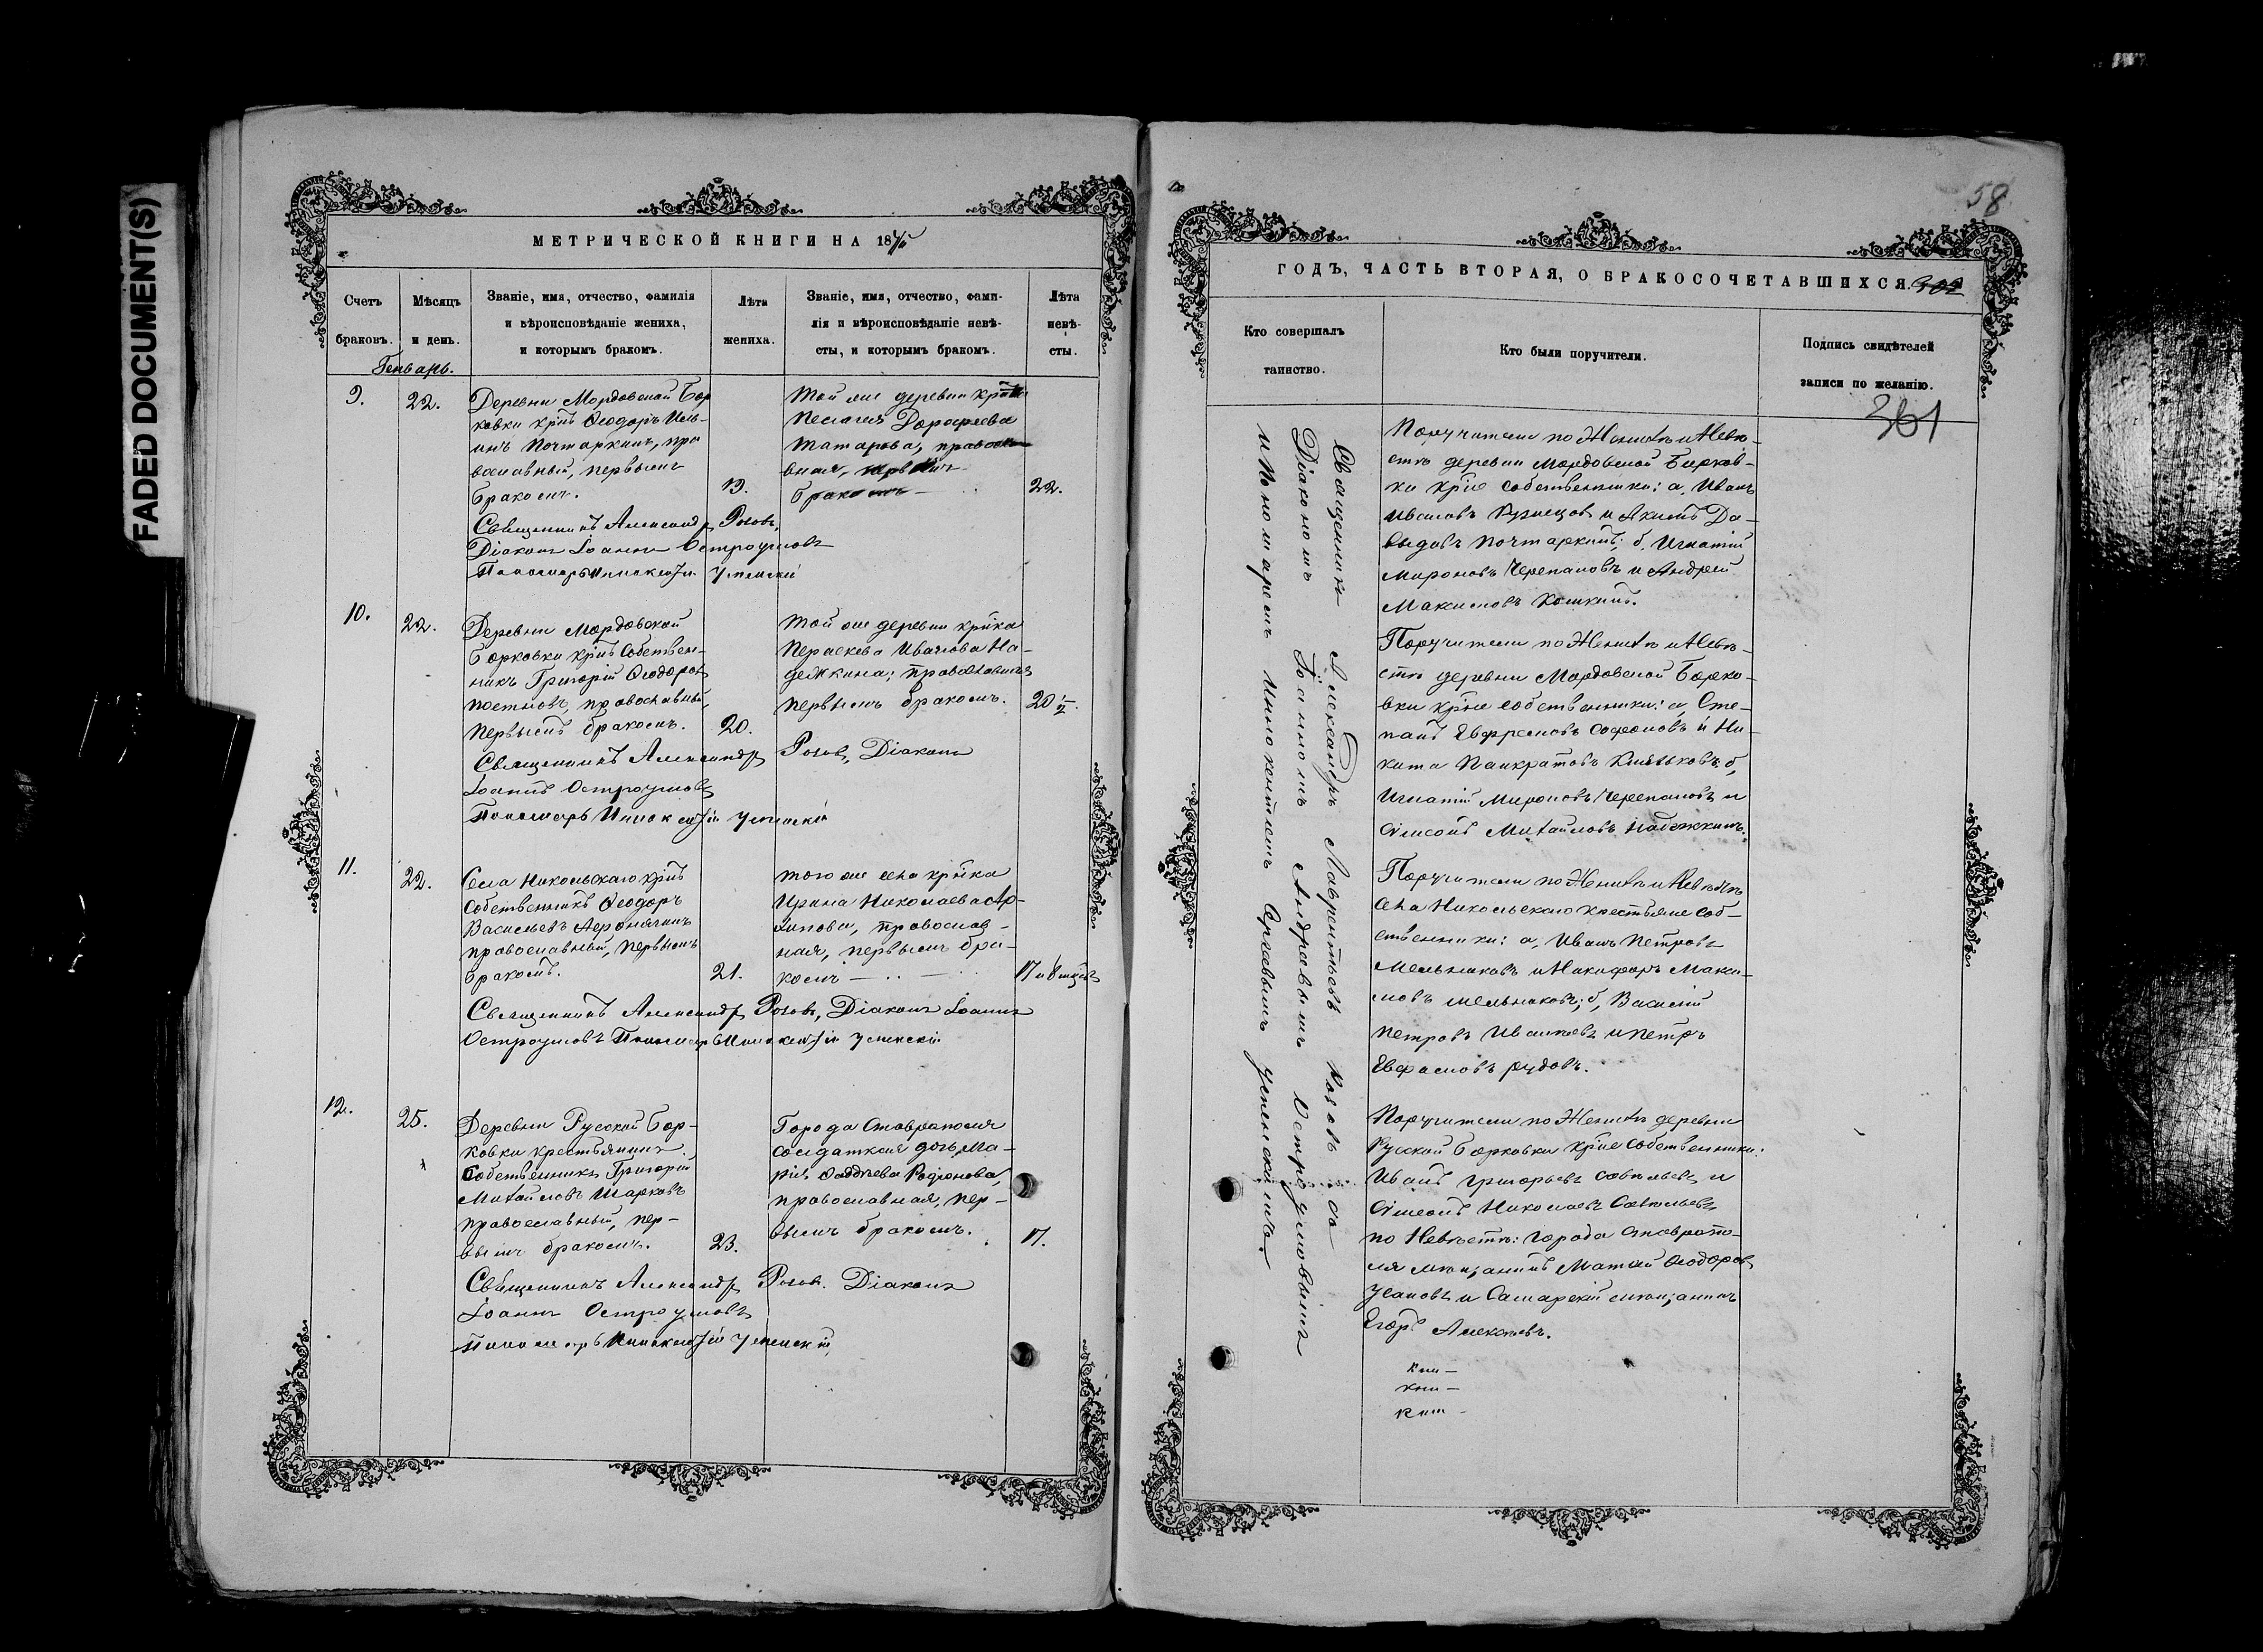 FADED DOCUMENT(S)
МЕТРИЧЕСКОЙ КНИГИ НА 18
Счетъ браковъ.
Мѣсяцъ и день.
Званіе, имя, отчество, фамилія и вѣроисповѣданіе жениха, и которымъ бракомъ.
Лѣта жениха.
Званіе, имя, отчество, фами-
лія и вѣроисповѣданіе невѣ-
сты, и которымъ бракомъ.
Лѣта невѣ-
сты.
Генварь.
9.
22.
Деревни Мордовской Бор
ковки крнъ Ѳеодоръ Иль-
инъ Почтаркинъ, пра
вославный, первымъ
бракомъ.
19.
Той же деревни
Пелагея Дорофеева
Татарова, православ
вная, первымъ
бракомъ
22.
Священникъ Александръ Розовъ,
Діаконъ Іоаннъ Остроумовъ
Пономарь Иннокентій Успенскій
10.
22.
Деревни Мордовской
Борковки крнъ Собствен-
никъ Григорій Ѳеодоровъ
Постновъ, православный,
первымъ бракомъ.
20.
Той же деревни крнка
Параскева Иванова На-
дежкина; православная
первымъ бракомъ.
20 ½.
Священникъ Александръ Розовъ, Діаконъ
Іоаннъ Остроумовъ
Пономарь Иннокентій Успенскій
11.
22.
Села Никольскаго крнъ
Собственникъ Ѳеодоръ
Васильевъ
православный, первымъ
бракомъ.
21.
Того же села крнка
Ирина Николаева Ар-
хипова, православ-
ная, первымъ бра-
комъ
17 и 8 мцвъ
Священникъ Александръ Розовъ, Діаконъ Іоаннъ
Остроумовъ Пономарь Иннокентій Успенскій
12.
25.
Деревни Русской Бор-
ковки крестьянинъ
Собственникъ Григорій
Михайловъ Шарковъ
православный, пер-
вымъ бракомъ.
23.
Города Ставрополя
солдатская дочь Ма-
рія Ѳаддѣева Родіонова,
православная, пер-
вымъ бракомъ.
17.
Священникъ Александръ Розовъ. Діаконъ
Іоаннъ Остроумовъ
Пономарь Иннокентій Успенскій
58
ГОДЪ, ЧАСТЬ ВТОРАЯ, О БРАКОСОЧЕТАВШИХСЯ.
302
Кто совершалъ таинство.
Кто были поручители.
Подпись свидѣтелей записи по желанію.
361
Священникъ Александръ Лаврентьевъ Розовъ съ
Діакономъ Іоанномъ Андреевымъ Остроумовымъ
и Пономаремъ Иннокентіемъ Сергѣевымъ Успенскимъ.
Поручители по Женихѣ и Невѣ-
стѣ деревни Мордовской Борков-
ки кріне собственники: а, Иванъ
Ивановъ Кузнецовъ и Акимъ Да-
выдовъ Почтаркинъ; б, Игнатій
Мироновъ Черепановъ и Андрей
Максимовъ Кошкинъ.
Поручители по Женихѣ и Невѣ-
стѣ деревни Мордовской Борко-
вки кріне собственники: а, Сте-
панъ Евфремовъ Софоновъ и Ни-
кита Панкратовъ б,
Игнатій Мироновъ Черепановъ и
Симеонъ Михайловъ Надежкинъ.
Поручители по Женихѣ и Невѣстѣ
села Никольскаго крестьяне соб-
ственники: а, Иванъ Петровъ
Мельниковъ и Никифоръ Макси-
мовъ Мельниковъ; б, Василій
Петровъ Ивашевъ и Петръ
рудовъ.
Поручители по Женихѣ деревни
Русской Борковки кріне собственники:
Иванъ Григорьевъ Савельевъ и
Симеонъ Николаевъ Савельевъ
по Невѣстѣ: города Ставропо-
ля мѣщанинъ Матвѣй Ѳеодоровъ
Усановъ и Самарскій мѣщанинъ
Егоръ Алексѣевъ.